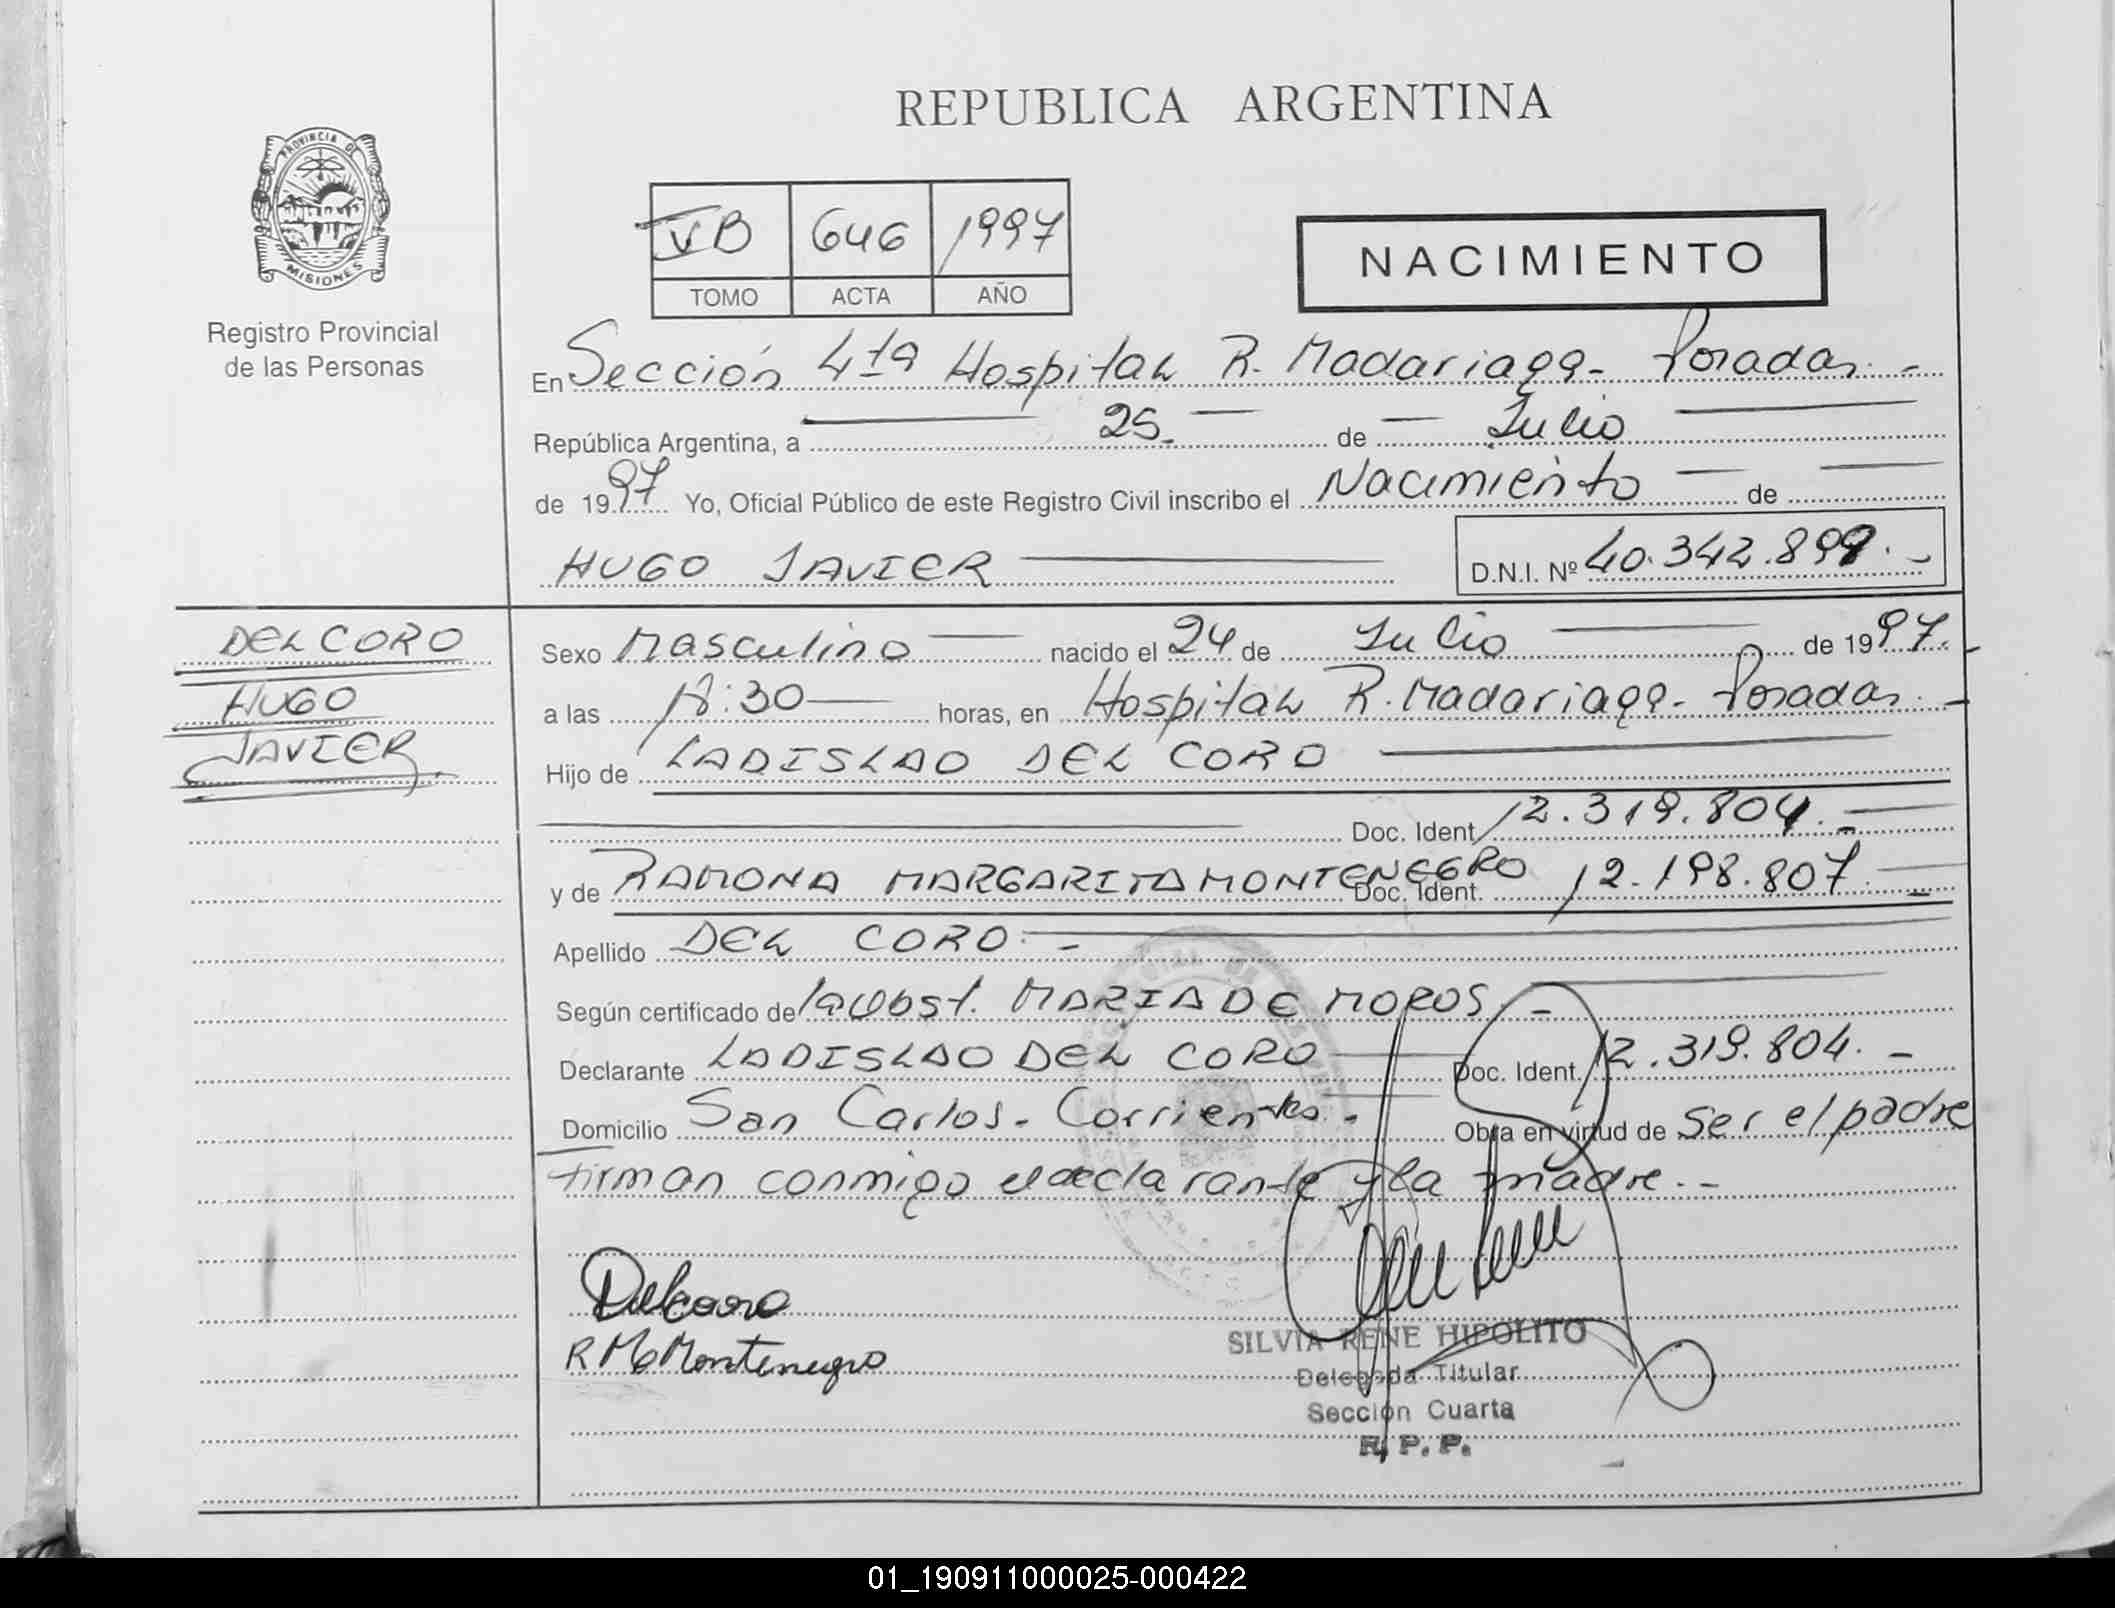 REPUBLICA ARGENTINA
PROVINCIA DE
MISIONES
Registro Provincial
de las Personas
VB 646 1997
TOMO ACTA AÑO
NACIMIENTO
En Sección 4ta Hospital R. Madariaga - Posadas. -
República Argentina, a 25 de Julio
de 1997 Yo, Oficial Público de este Registro Civil inscribo el Nacimiento de
HUGO JAVIER D.N.I. Nº 40.342.899. -
DEL CORO
HUGO
JAVIER
Sexo Masculino nacido el 24 de Julio de 1997.
a las 18:30 horas, en Hospital R. Madariaga - Posadas. -
Hijo de LADISLAO DEL CORO
Doc. Ident. 12.319.804. -
y de RAMONA MARGARITA MONTENEGRO Doc. Ident. 12.198.807. -
Apellido DEL CORO. -
Según certificado de la obst. MARIA DE MOROS. -
Declarante LADISLAO DEL CORO Doc. Ident. 12.319.804. -
Domicilio San Carlos - Corrientes. - Obra en virtud de ser el padre
firman conmigo el declarante y la madre. -
Delcoro
R M Montenegro
SILVIA RENE HIPOLITO
Delegada Titular
Sección Cuarta
R. P. P.
01_190911000025-000422